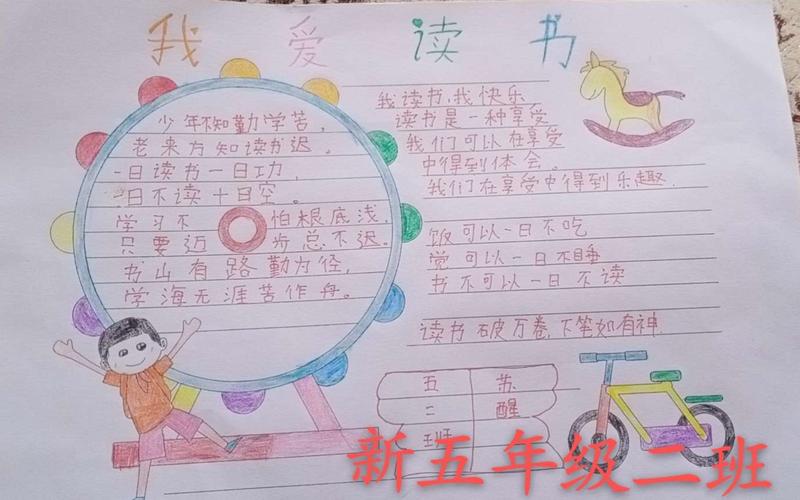 我爱读书
少年不知勤学苦，
老来方知读书迟。
一日读书一日功，
一日不读十日空。
学习不怕根底浅，
只要迈步总不迟。
书山有路勤为径，
学海无涯苦作舟。
我读书，我快乐
读书是一种享受
我们可以在享受
中得到体会。
我们在享受中得到乐趣.
饭可以一日不吃
觉可以一日不睡
书不可以一日不读
读书破万卷，下笔如有神.
五二班
苏醒
新五年级二班